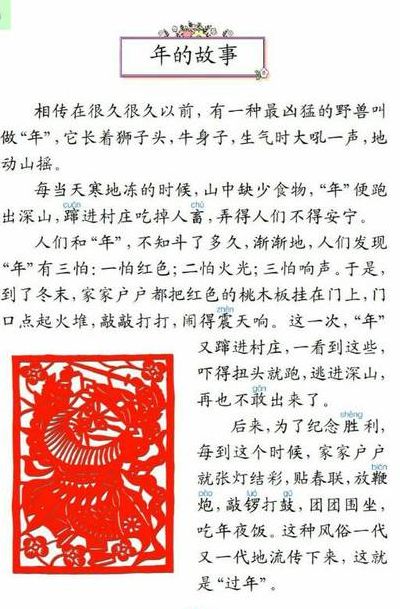 年的故事
相传在很久很久以前，有一种最凶猛的野兽叫
做“年”，它长着狮子头，牛身子，生气时大吼一声，地
动山摇。
每当天寒地冻的时候，山中缺少食物，“年”便跑
cuān chù
出深山，蹿进村庄吃掉人畜，弄得人们不得安宁。
人们和“年”，不知斗了多久，渐渐地，人们发现
“年”有三怕：一怕红色；二怕火光；三怕响声。于是，
到了冬末，家家户户都把红色的桃木板挂在门上，门
zhèn
口点起火堆，敲敲打打，闹得震天响。这一次，“年”
又蹿进村庄，一看到这些，
吓得扭头就跑，逃进深山，
gǎn
再也不敢出来了。
shèng
后来，为了纪念胜利，
每到这个时候，家家户户
biān
就张灯结彩，贴春联，放鞭
pào luó gǔ
炮，敲锣打鼓，团团围坐，
吃年夜饭。这种风俗一代
又一代地流传下来，这就
是“过年”。